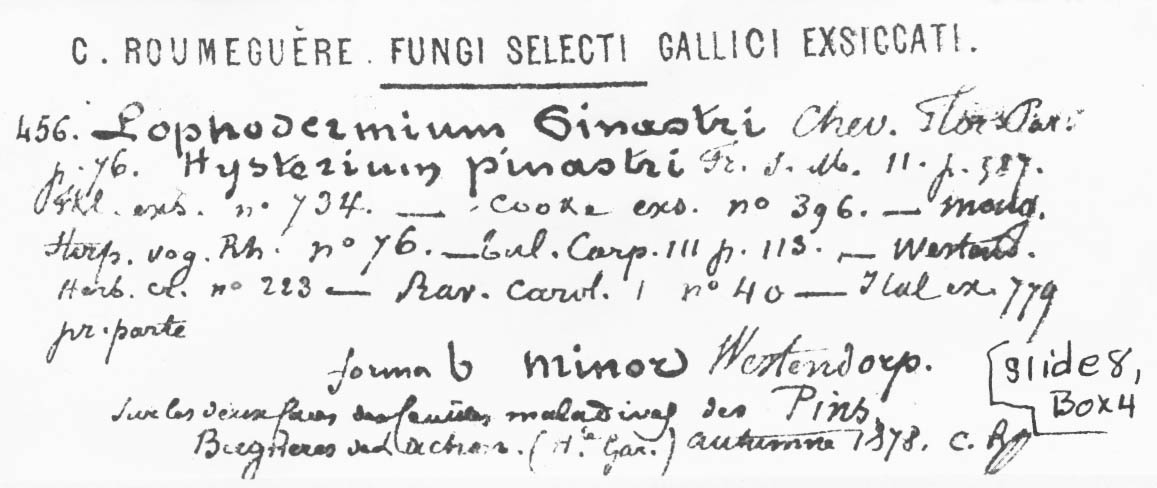 C. ROUMEGUÈRE. FUNGI SELECTI GALLICI EXSICCATI.
456. Lophodermium Pinastri Chev. Flor. Par.
p. 76. Hysterium pinastri Fr. S. M. 11. p. 587.
Fkl. exs. n° 734. — Cooke exs. n° 396. — Moug.
Stirp. vog. Rh. n° 76. — Tul. Carp. III p. 113. — Westend.
Herb. cr. n° 223 — Rav. Carol. 1 n° 40 — ex. 779
pr. parte
forma b minor Westendorp.
Sur les deux faces des feuilles maladives des Pins,
Bagnères de Luchon. (Hte Gar.) automne 1878. C. Rg
Slide 8,
Box 4